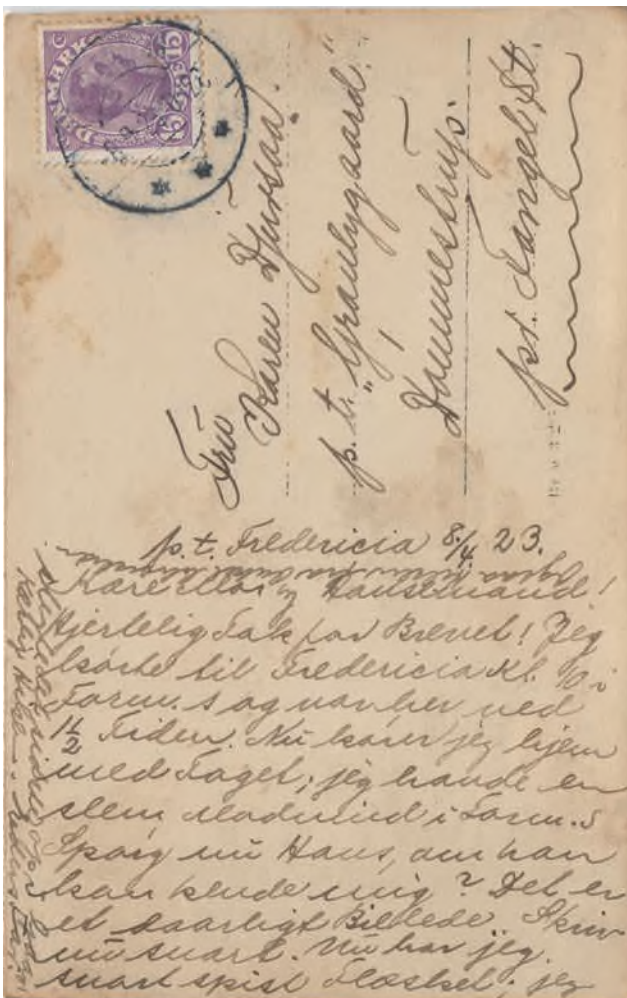 DANMARK
15
Fru
Karen Djursaa.
p. t. "Graulygaard."
Dømmestrup.
pr. Tangel St.
p. t. Fredericia 8/4 23.
Kære Mor og Hansemand!
Hjertelig Tak for Brevet! Jeg
kørte til Fredericia Kl. 10 i
Form. s og var her ved
1 1/2 Tiden. Nu kører jeg hjem
med Toget; jeg havde en
slem Modvind i Form. s
Spørg nu Hans, om han
kan kende mig? Det er
et daarligt Billede. Skriv
nu snart. Nu har jeg
snart spist Flæsket. jeg